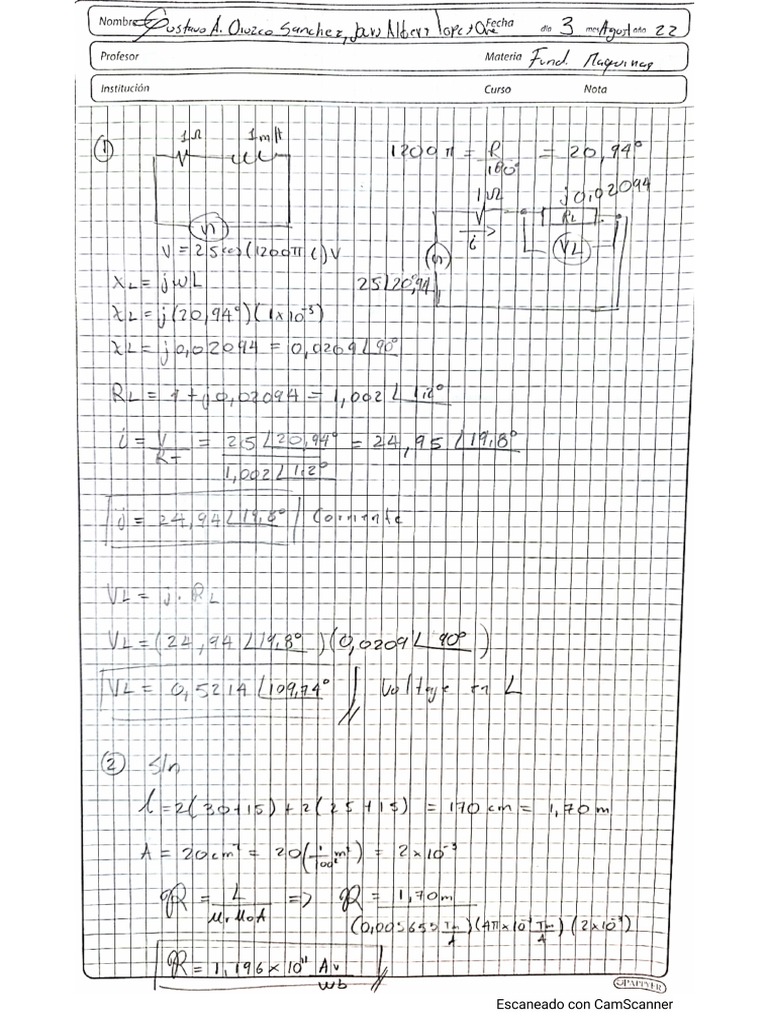 Nombre Gustavo A. Orozco Sanchez, Jairo Alberto Lopez Fecha día 3 mes Agost año 22
Profesor Materia Fund. Maquinas
Institución Curso Nota
① 1Ω 1mH 1200π = R/180° = 20,94°
1Ω j0,02094
RL
i VL
V = 25cos(1200π t)V
XL = jωL 25∠20,94
XL = j(20,94°)(1x10⁻³)
XL = j0,02094 = 0,0209∠90°
RL = 1+j0,02094 = 1,002∠1.2°
i = V/RT = 25∠20,94°/1,002∠1.2° = 24,95∠19,8°
j = 24,94∠19,8° Corriente
VL = j · RL
VL = (24,94∠19,8°)(0,0209∠90°)
VL = 0,5214∠109,74° Voltaje en L
② Sln
l = 2(30+15) + 2(25+15) = 170 cm = 1,70 m
A = 20cm² = 20(1/100² m²) = 2x10⁻³
R = L/μr μ0 A => R = 1,70m/(0,003653 Tm/A)(4πx10⁻⁷ Tm/A)(2x10⁻³)
R = 1,196x10¹¹ Av/wb
PAPIVER
Escaneado con CamScanner